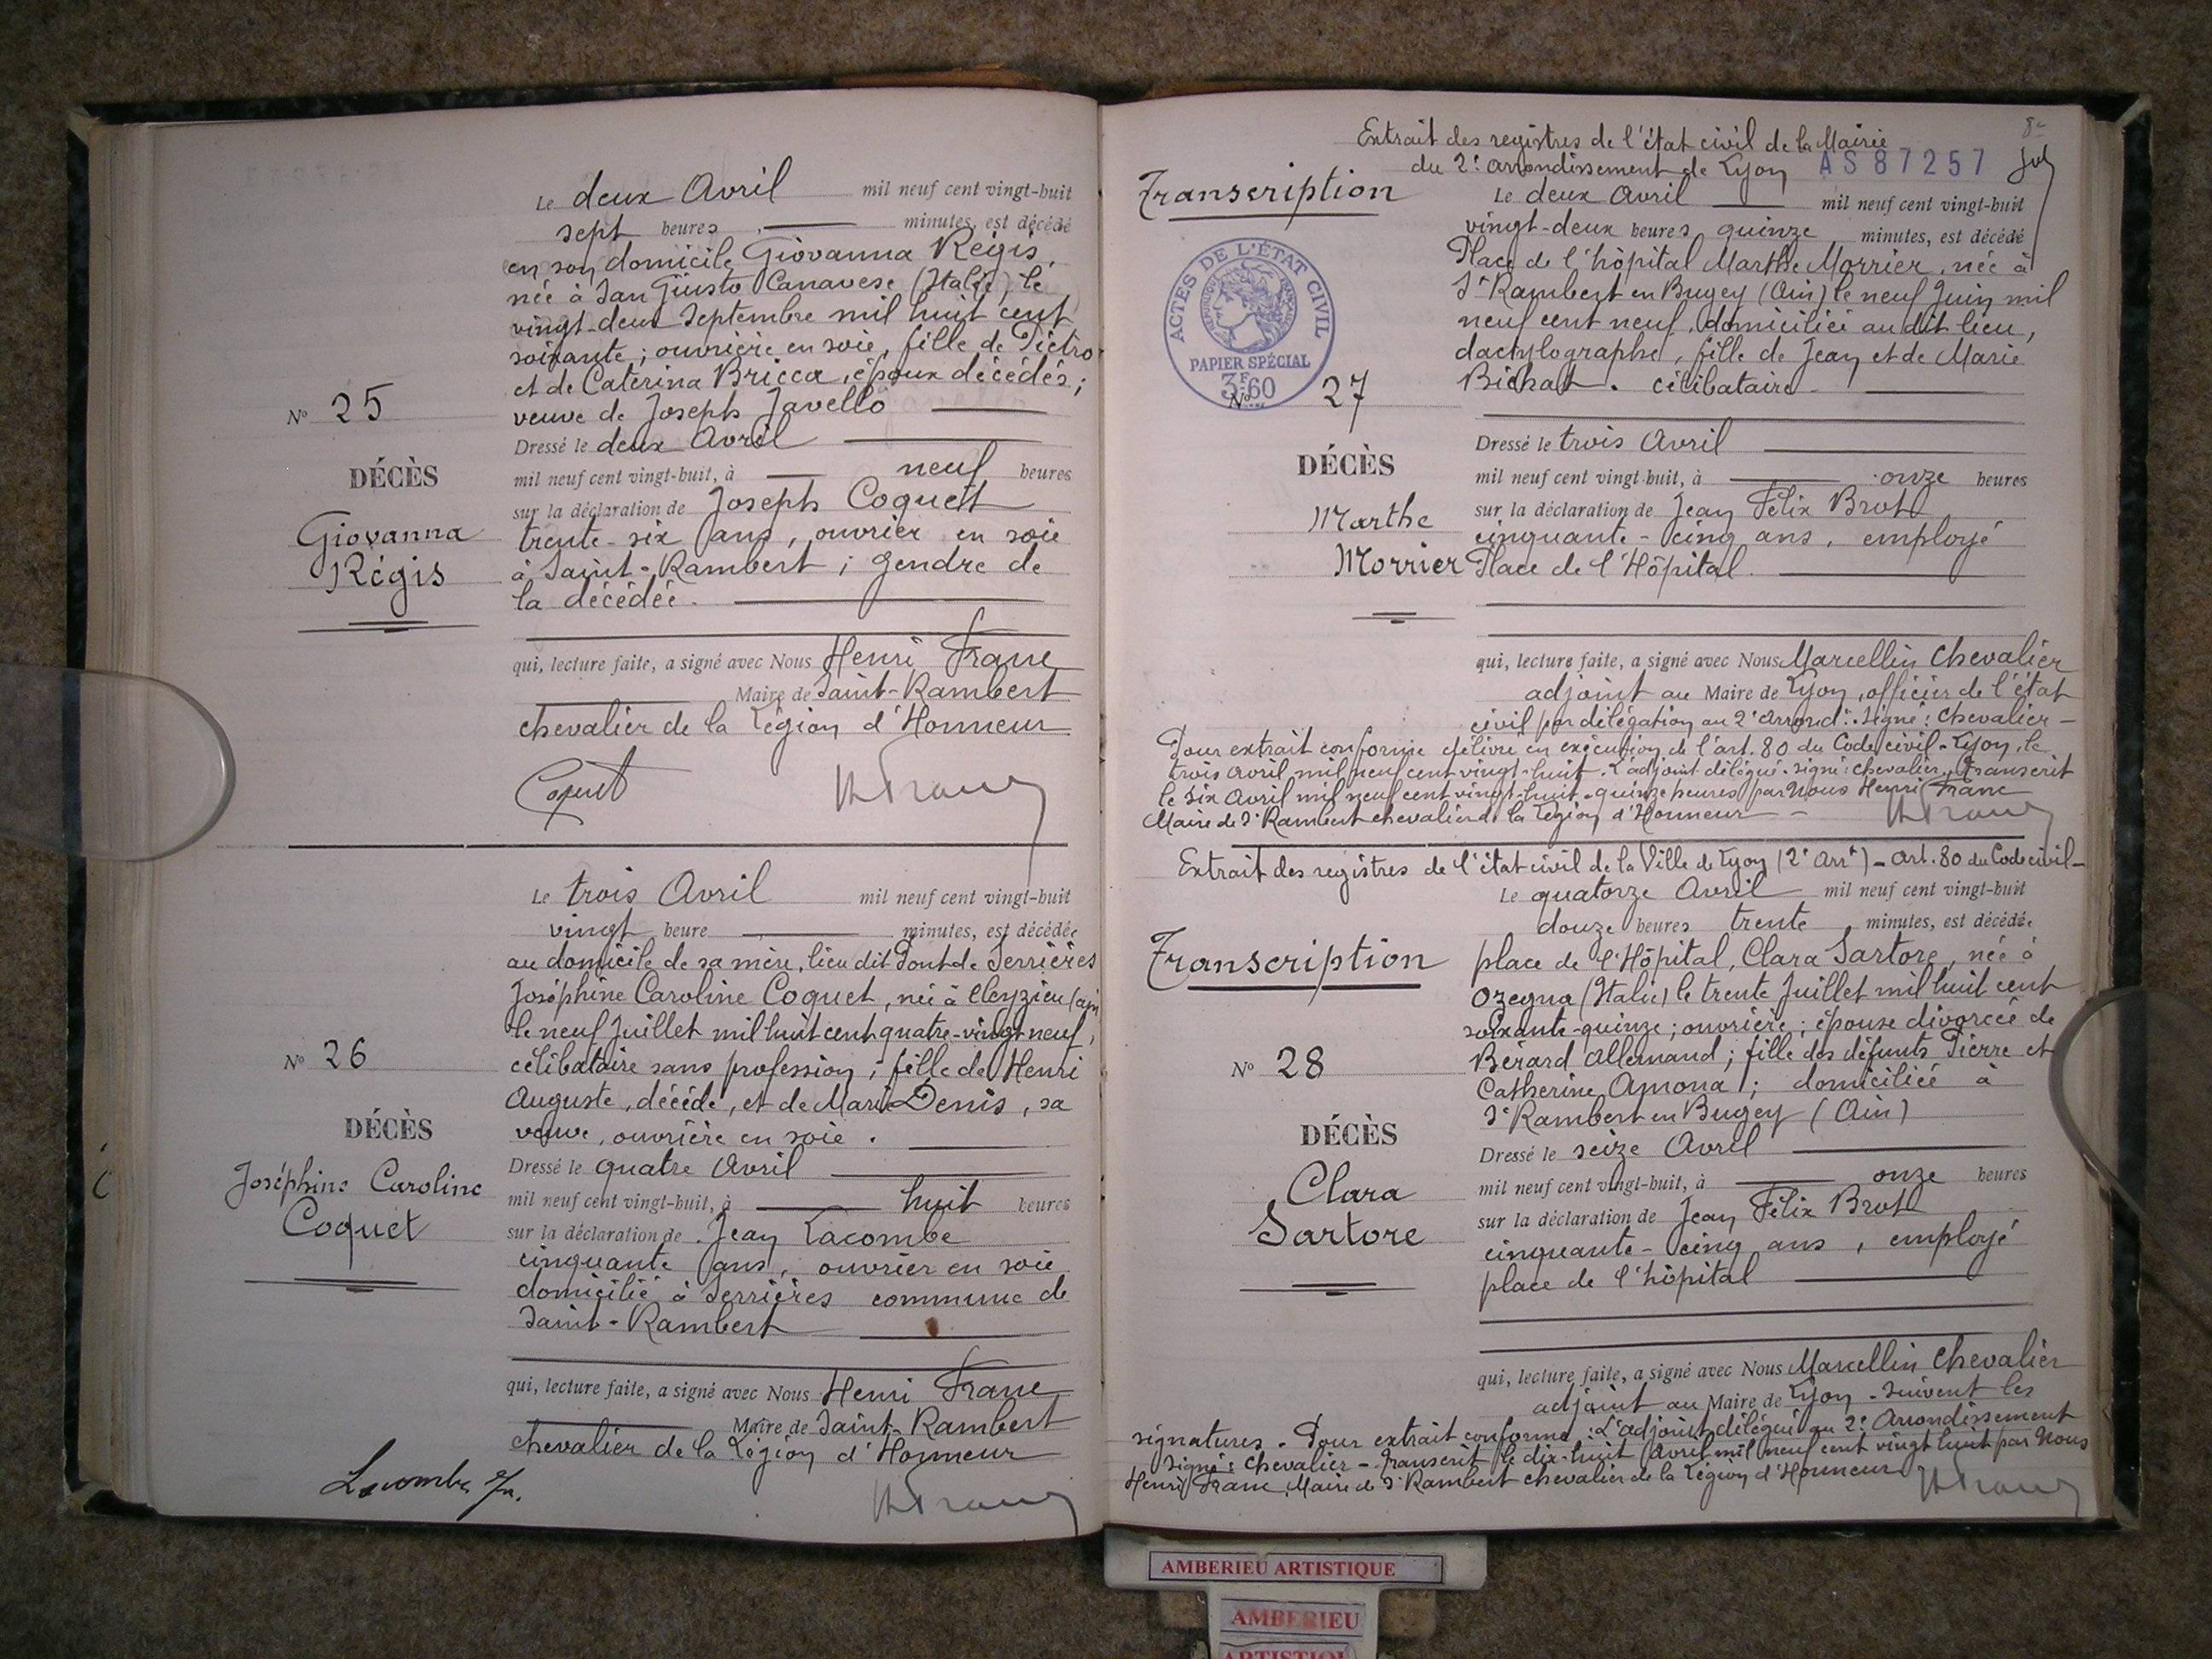 Le deux Avril mil neuf cent vingt-huit
sept heures minutes, est décédé
en son domicile Giovanna Régis,
née à San Giusto Canavese (Italie), le
vingt-deux Septembre mil huit cent
soixante ; ouvrière en soie, fille de Pietro
et de Caterina Bricca, époux décédés ;
veuve de Joseph Javello
Nº 25
Dressé le deux Avril
DÉCÈS
mil neuf cent vingt-huit, à neuf heures
Giovanna
Régis
sur la déclaration de Joseph Coquett
trente-six ans, ouvrier en soie
à Saint-Rambert ; gendre de
la décédée.
qui, lecture faite, a signé avec Nous Henri Franc
Maire de Saint-Rambert
chevalier de la Légion d'Honneur
HFranc
Le trois Avril mil neuf cent vingt-huit
vingt heure minutes, est décédée
au domicile de sa mère, lieu dit Pont de Serrières
Joséphine Caroline Coquet, née à Cleyzieu (ain
le neuf Juillet mil huit cent quatre-vingt neuf,
célibataire sans profession ; fille de Henri
Auguste, décédé, et de Marie Denis, sa
veuve, ouvrière en soie.
Nº 26
DÉCÈS
Joséphine Caroline
Coquet
Dressé le quatre Avril
mil neuf cent vingt-huit, à huit heures
sur la déclaration de Jean Lacombe
cinquante ans, ouvrier en soie
domicilié à Serrières commune de
Saint-Rambert
qui, lecture faite, a signé avec Nous Henri Franc
Maire de Saint-Rambert
chevalier de la Légion d'Honneur
Lacombe Jn.
HFranc
Extrait des registres de l'état civil de la Mairie
du 2e arrondissement de Lyon AS87257
Transcription
Le deux Avril mil neuf cent vingt-huit
vingt-deux heures quinze minutes, est décédé
Place de l'hôpital Marthe Morrier, née à
St Rambert en Bugey (Ain) le neuf Juin mil
neuf cent neuf, domiciliée au dit lieu,
dactylographe, fille de Jean et de Marie
Bichat. célibataire
ACTES DE L'ÉTAT CIVIL
RÉPUBLIQUE FRANÇAISE
PAPIER SPÉCIAL
3F60
Nº 27
DÉCÈS
Marthe
Morrier
Dressé le trois Avril
mil neuf cent vingt-huit, à onze heures
sur la déclaration de Jean Félix Brot
cinquante-cinq ans, employé
Place de l'Hôpital.
qui, lecture faite, a signé avec Nous Marcellin Chevalier
adjoint au Maire de Lyon, officier de l'état
civil par délégation au 2e arrondt. Signé : Chevalier -
Pour extrait conforme délivré en exécution de l'art. 80 du Code civil - Lyon, le
trois avril mil neuf cent vingt-huit. L'adjoint délégué. signé : Chevalier. Transcrit
le six Avril mil neuf cent vingt-huit - quinze heures par Nous Henri Franc
Maire de St Rambert chevalier de la Légion d'Honneur -
HFranc
Extrait des registres de l'état civil de la Ville de Lyon (2e Arrt) - art. 80 du Code civil -
Le quatorze Avril mil neuf cent vingt-huit
douze heures trente minutes, est décédée
Transcription
place de l'Hôpital, Clara Sartore, née à
Ozegna (Italie) le trente Juillet mil huit cent
soixante-quinze ; ouvrière ; épouse divorcée de
Bérard Allemand ; fille des défunts Pierre et
Catherine Amona ; domiciliée à
St Rambert en Bugey (Ain)
Nº 28
DÉCÈS
Clara
Sartore
Dressé le seize Avril
mil neuf cent vingt-huit, à onze heures
sur la déclaration de Jean Félix Brot
cinquante-cinq ans, employé
place de l'hôpital
qui, lecture faite, a signé avec Nous Marcellin Chevalier
adjoint au Maire de Lyon - Suivent les
signatures. Pour extrait conforme : L'adjoint délégué au 2e Arrondissement
Signé : Chevalier - Transcrit le dix-huit Avril mil neuf cent vingt huit par Nous
Henri Franc, Maire de St Rambert chevalier de la Légion d'Honneur
HFranc
AMBERIEU ARTISTIQUE
AMBERIEU
ARTISTIQU